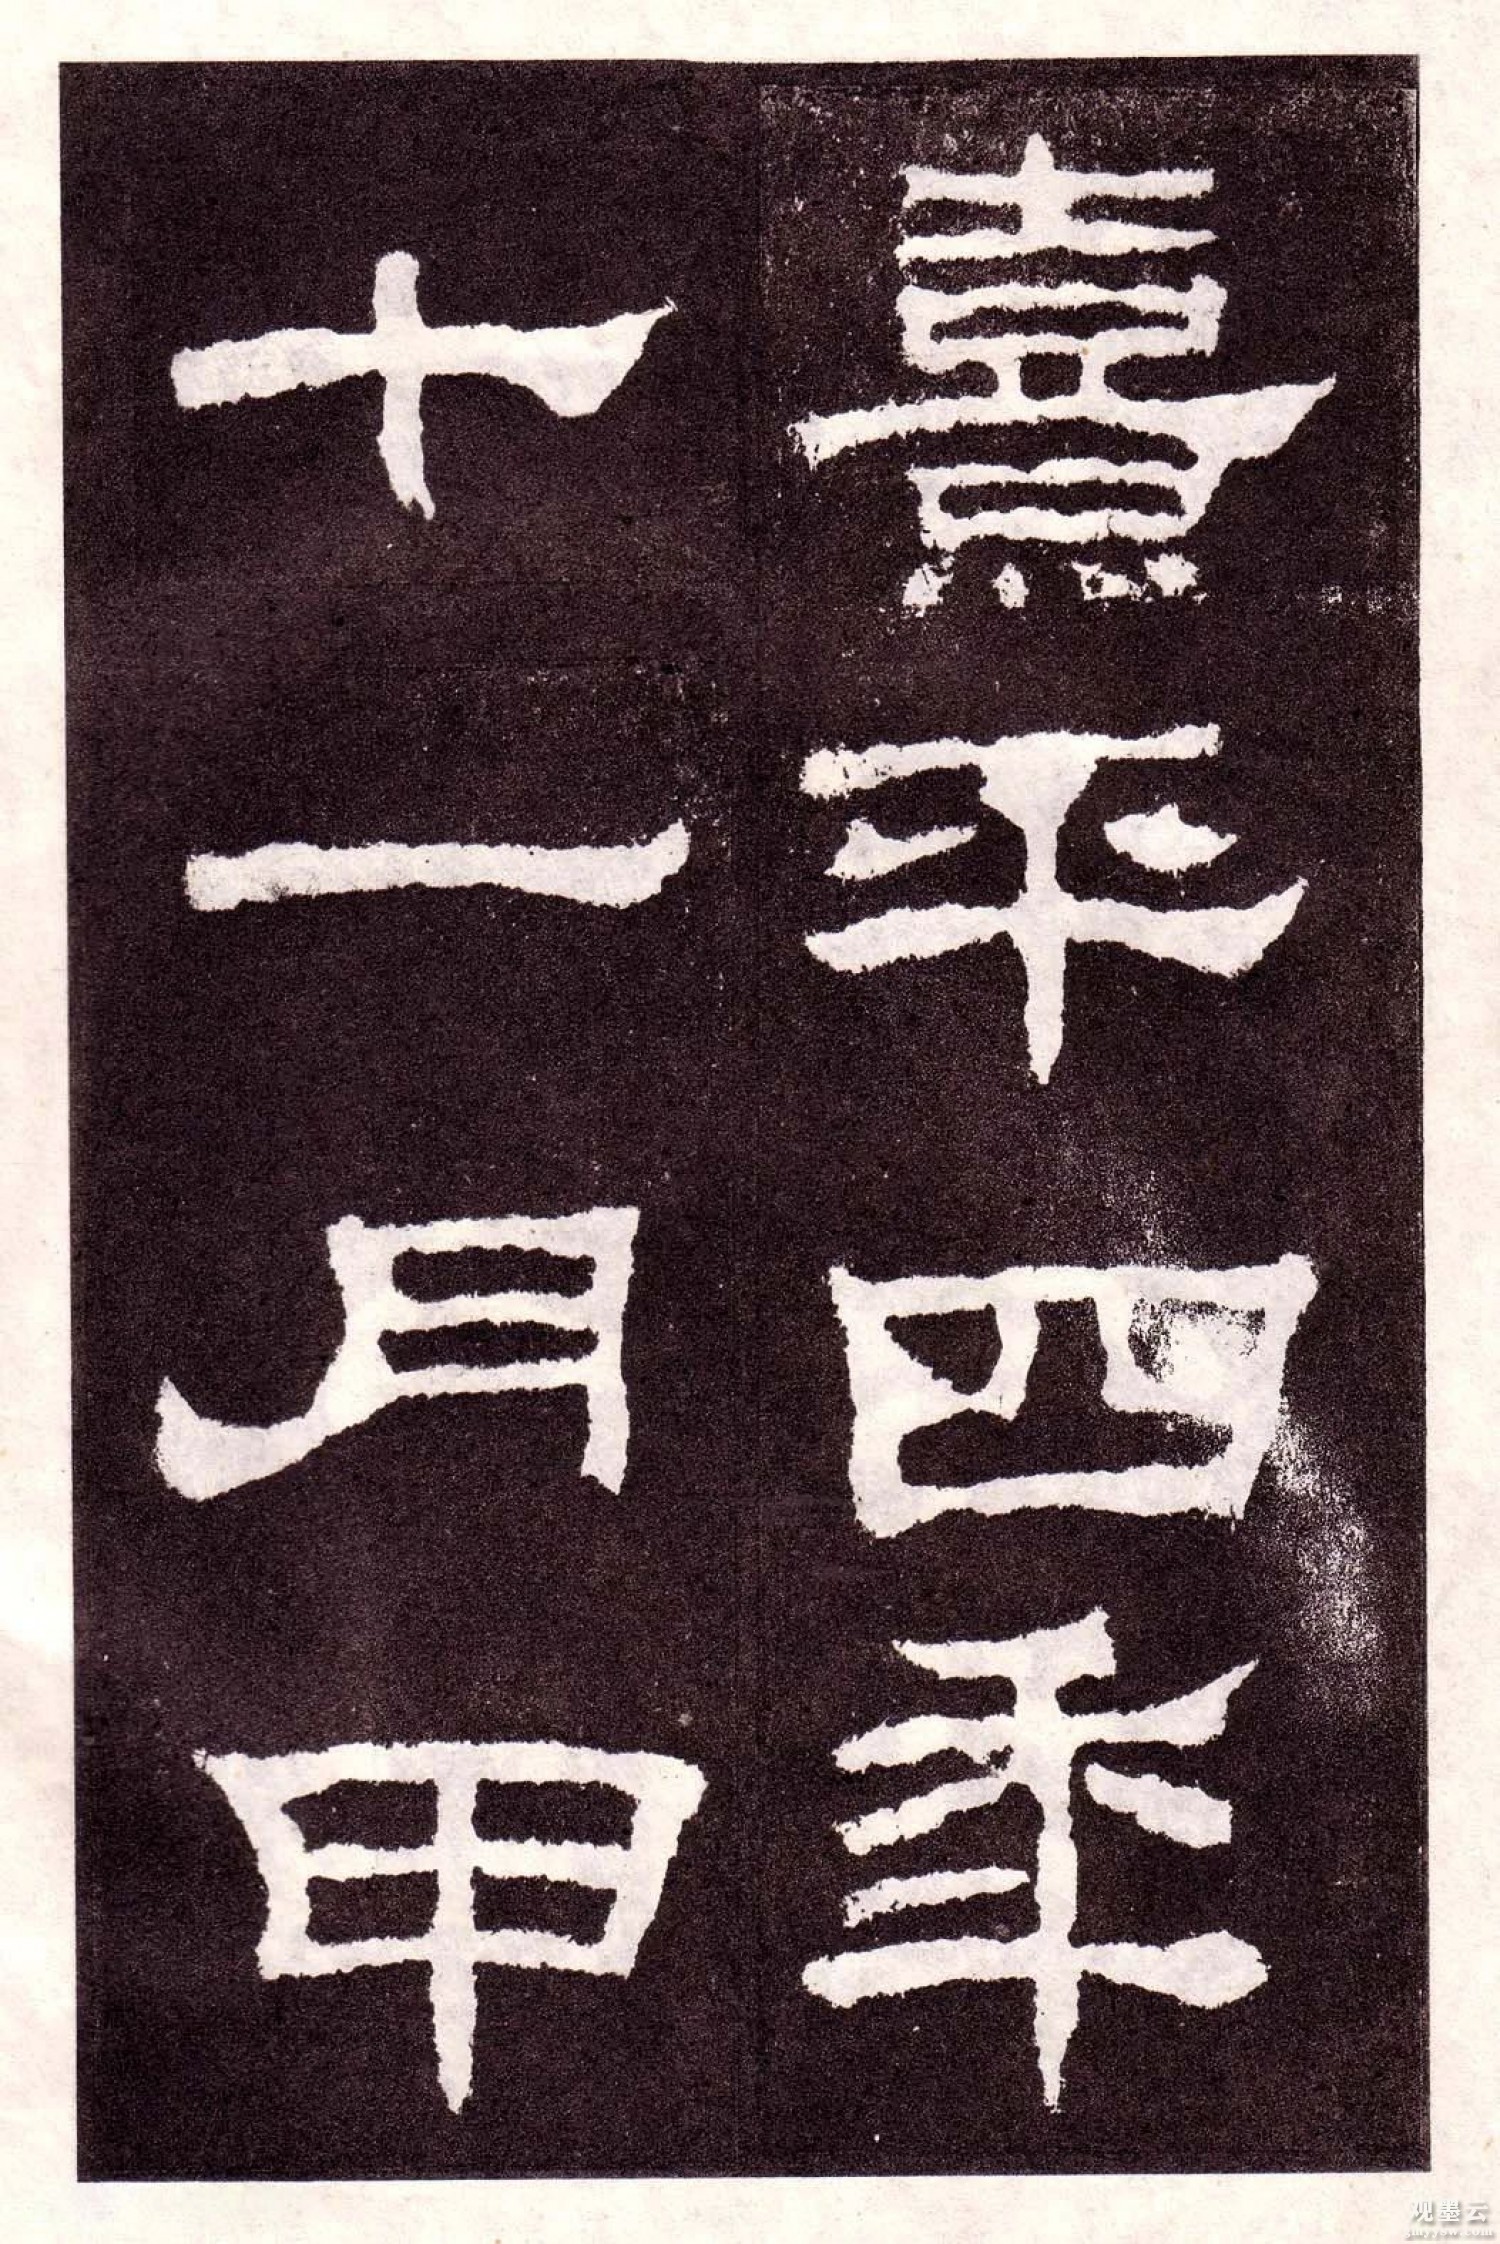 熹平四年
十一月甲
观墨云